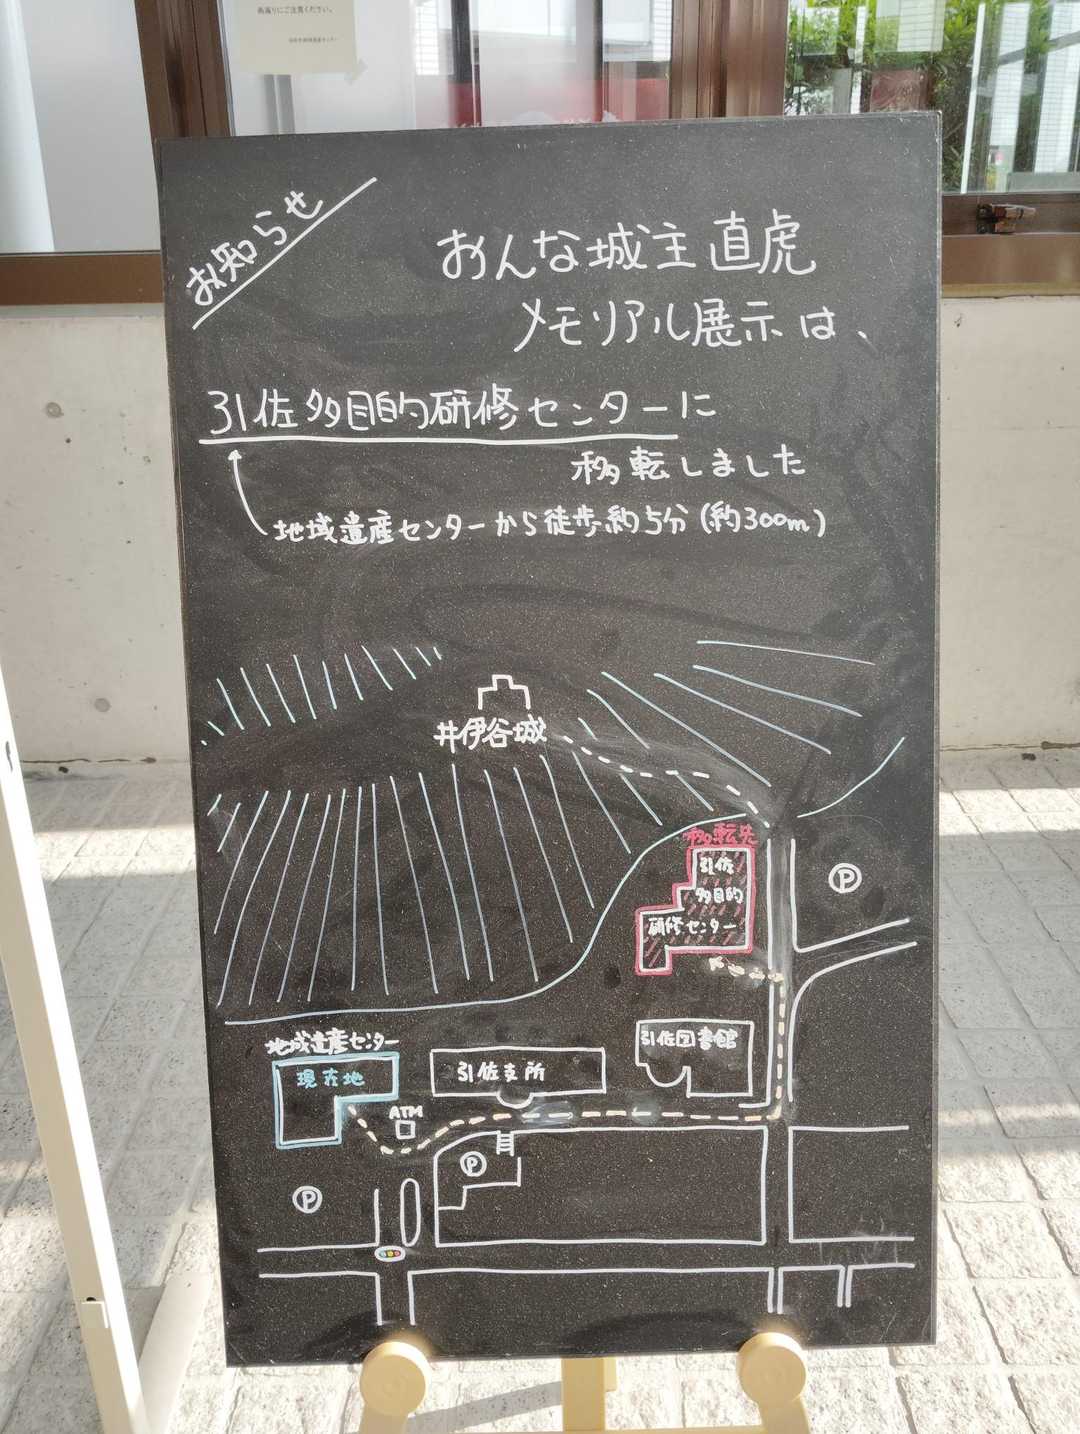 雨漏りにご注意ください。
お知らせ
おんな城主直虎
メモリアル展示は、
引佐多目的研修センターに
移転しました
地域遺産センターから徒歩約5分(約300m)
井伊谷城
移転先
引佐
多目的
研修センター
P
地域遺産センター
現在地
引佐支所
引佐図書館
ATM
P
P